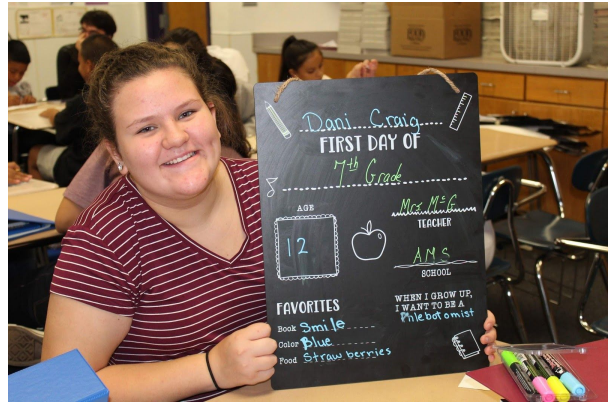 Dani Craig
FIRST DAY OF
7th Grade
AGE
12
Mrs McG
TEACHER
AMS
SCHOOL
FAVORITES
Book Smile
Color Blue
Food Strawberries
WHEN I GROW UP,
I WANT TO BE A
Phlebotomist